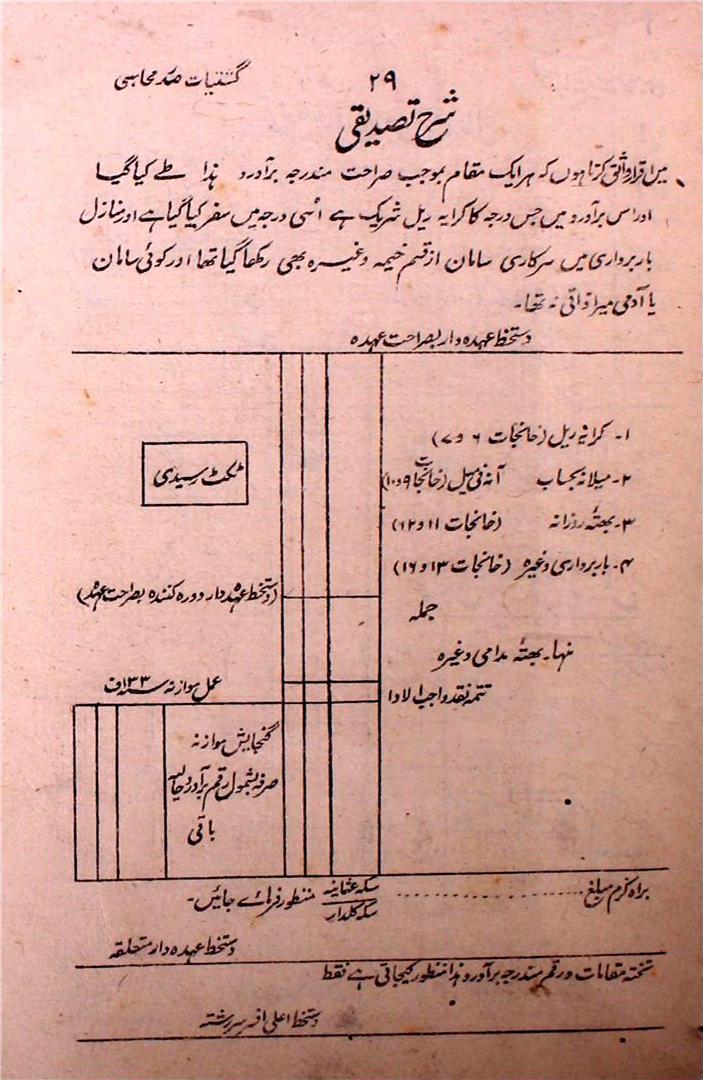 ۲۹
گشتیات صدر محاسبی
شرح تصدیقی
میں اقرار واثق کرتا ہوں کہ ہر ایک مقام بموجب صراحت مندرجہ برآورد ہذا طے کیا گیا
اور اس برآورد میں جس درجہ کا کرایہ ریل شریک ہے اُسی درجہ میں سفر کیا گیا ہے اور منازل
باربرداری میں سرکاری سامان از قسم خیمہ وغیرہ بھی رکھا گیا تھا اور کوئی سامان
یا آدمی میرا ذاتی نہ تھا۔
دستخط عہدہ دار بصراحت عہدہ
۱۔ کرایہ ریل (خانجات ۶ و ۷)
ٹکٹ رسیدی
۲۔ میلانہ بحساب آنہ فی میل (خانجات ۹ و ۱۰)
۳۔ بھتہ روزانہ (خانجات ۱۱ و ۱۲)
۴۔ باربرداری وغیرہ (خانجات ۱۳ و ۱۶)
(دستخط عہدہ دار دورہ کنندہ بصراحت عہدہ)
جملہ
منہا۔ بھتہ مدامی وغیرہ
عمل موازنہ سنہ ۱۳۳ ف
تتمہ نقد واجب الادا
گنجایش موازنہ
صرفہ بشمول رقم برآورد حالیہ
باقی
براہ کرم مبلغ .................. سکہ عثمانیہ منظور فرمائے جائیں۔
سکہ کلدار
دستخط عہدہ دار متعلقہ
تختہ مقامات و رقم مندرجہ برآورد ہذا منظور کیجاتی ہے فقط
دستخط اعلیٰ افسر سررشتہ